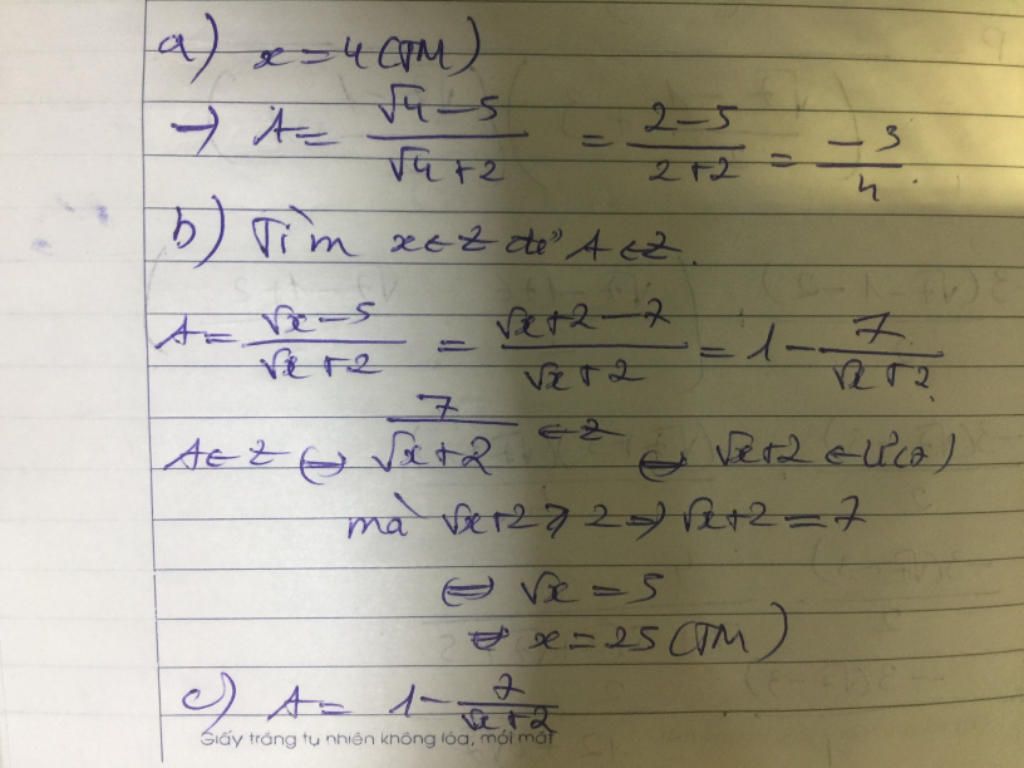 a) x = 4 (TM)
→ A = \frac{√4 - 5}{√4 + 2} = \frac{2 - 5}{2 + 2} = \frac{-3}{4}.
b) Tìm x ∈ Z để A ∈ Z.
A = \frac{√x - 5}{√x + 2} = \frac{√x + 2 - 7}{√x + 2} = 1 - \frac{7}{√x + 2}
A ∈ Z ⇔ \frac{7}{√x + 2} ∈ Z ⇔ √x + 2 ∈ Ư(7)
mà √x + 2 ⩾ 2 ⇒ √x + 2 = 7
⇔ √x = 5
⇔ x = 25 (TM)
c) A = 1 - \frac{7}{√x + 2}
Giấy trắng tự nhiên không lóa, mỏi mắt